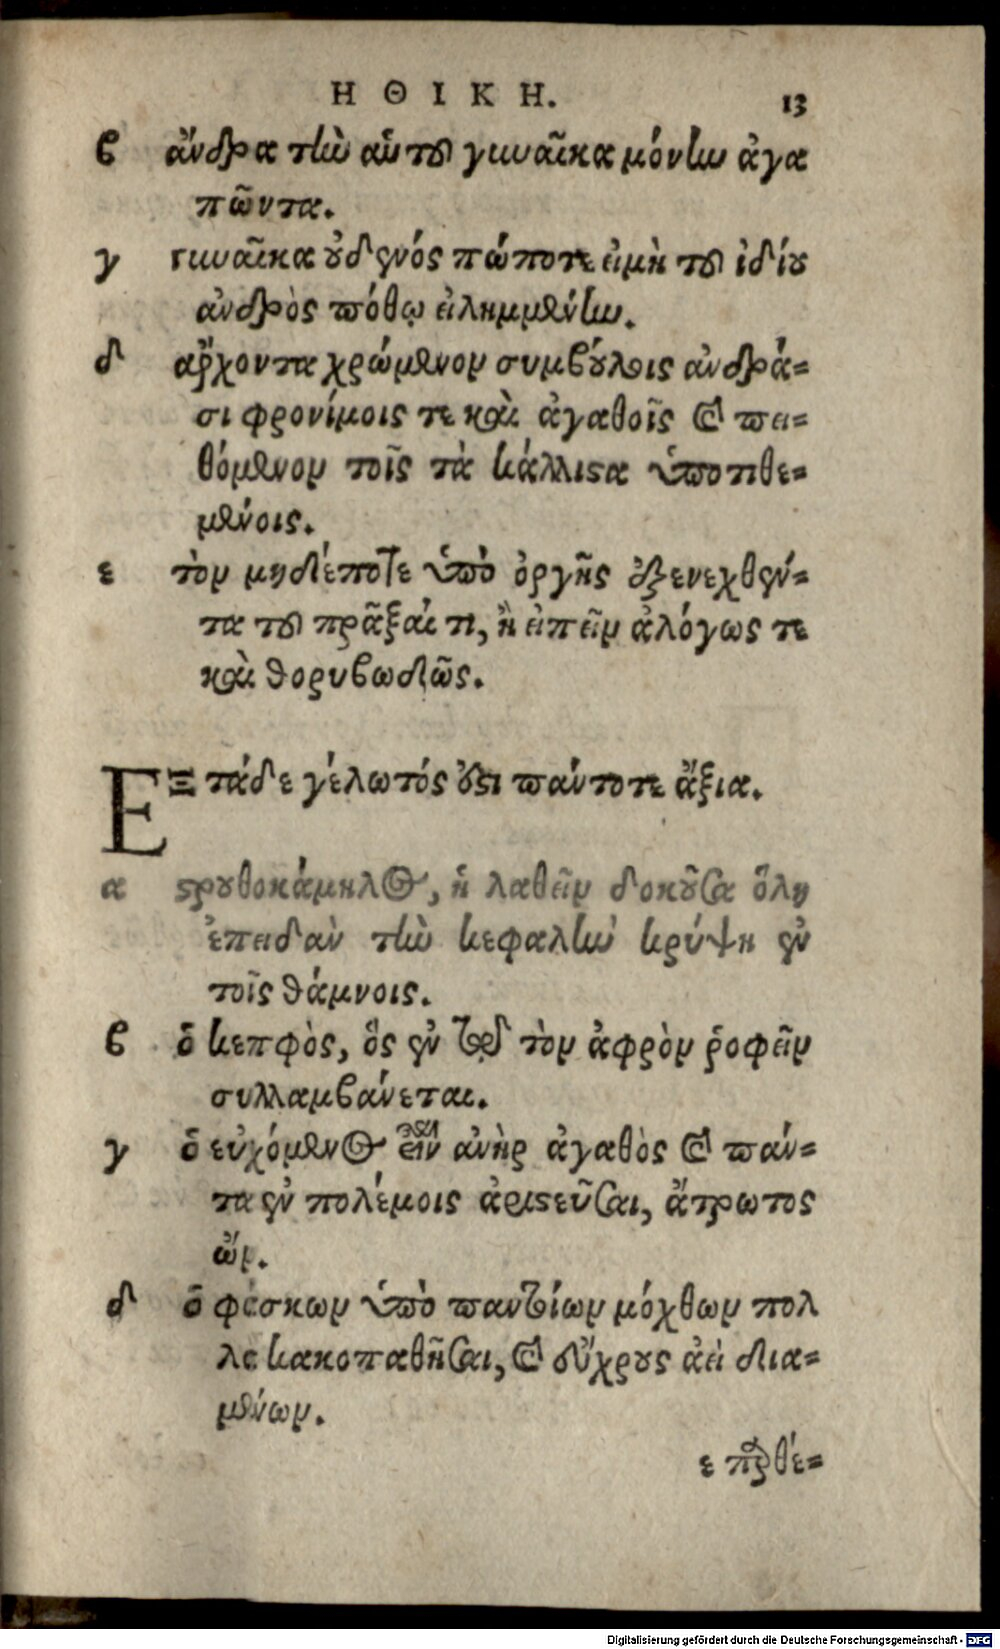 ΗΘΙΚΗ. 13
β ἄνδρα τὴν αὑτοῦ γυναῖκα μόνην ἀγα
πῶντα.
γ γυναῖκα οὐδενός πώποτε εἰ μὴ τοῦ ἰδίου
ἀνδρὸς πόθῳ εἰλημμένην.
δ ἄρχοντα χρώμενον συμβούλοις ἀνδρά-
σι φρονίμοις τε καὶ ἀγαθοῖς καὶ πει-
θόμενον τοῖς τὰ κάλλιστα ὑποτιθε-
μένοις.
ε τὸν μηδέποτε ὑπὸ ὀργῆς ἐξενεχθέν-
τα τοῦ πρᾶξαί τι, ἢ εἰπεῖν ἀλόγως τε
καὶ θορυβωδῶς.
ΕΞ τάδε γέλωτός ἐστι πάντοτε ἄξια.
α στρουθοκάμηλος, ἡ λαθεῖν δοκοῦσα ὅλη
ἐπειδὰν τὴν κεφαλὴν κρύψη ἐν
τοῖς θάμνοις.
β ὁ κεπφὸς, ὃς ἐν τῷ τὸν ἀφρὸν ῥοφεῖν
συλλαμβάνεται.
γ ὁ εὐχόμενος εἶναι ἀνὴρ ἀγαθὸς καὶ πάν-
τα ἐν πολέμοις ἀριστεῦσαι, ἄτρωτος
ὤν.
δ ὁ φάσκων ὑπὸ παντοίων μόχθων πολ
λὰ κακοπαθῆσαι, καὶ εὔχρους ἀεὶ δια-
μένων.